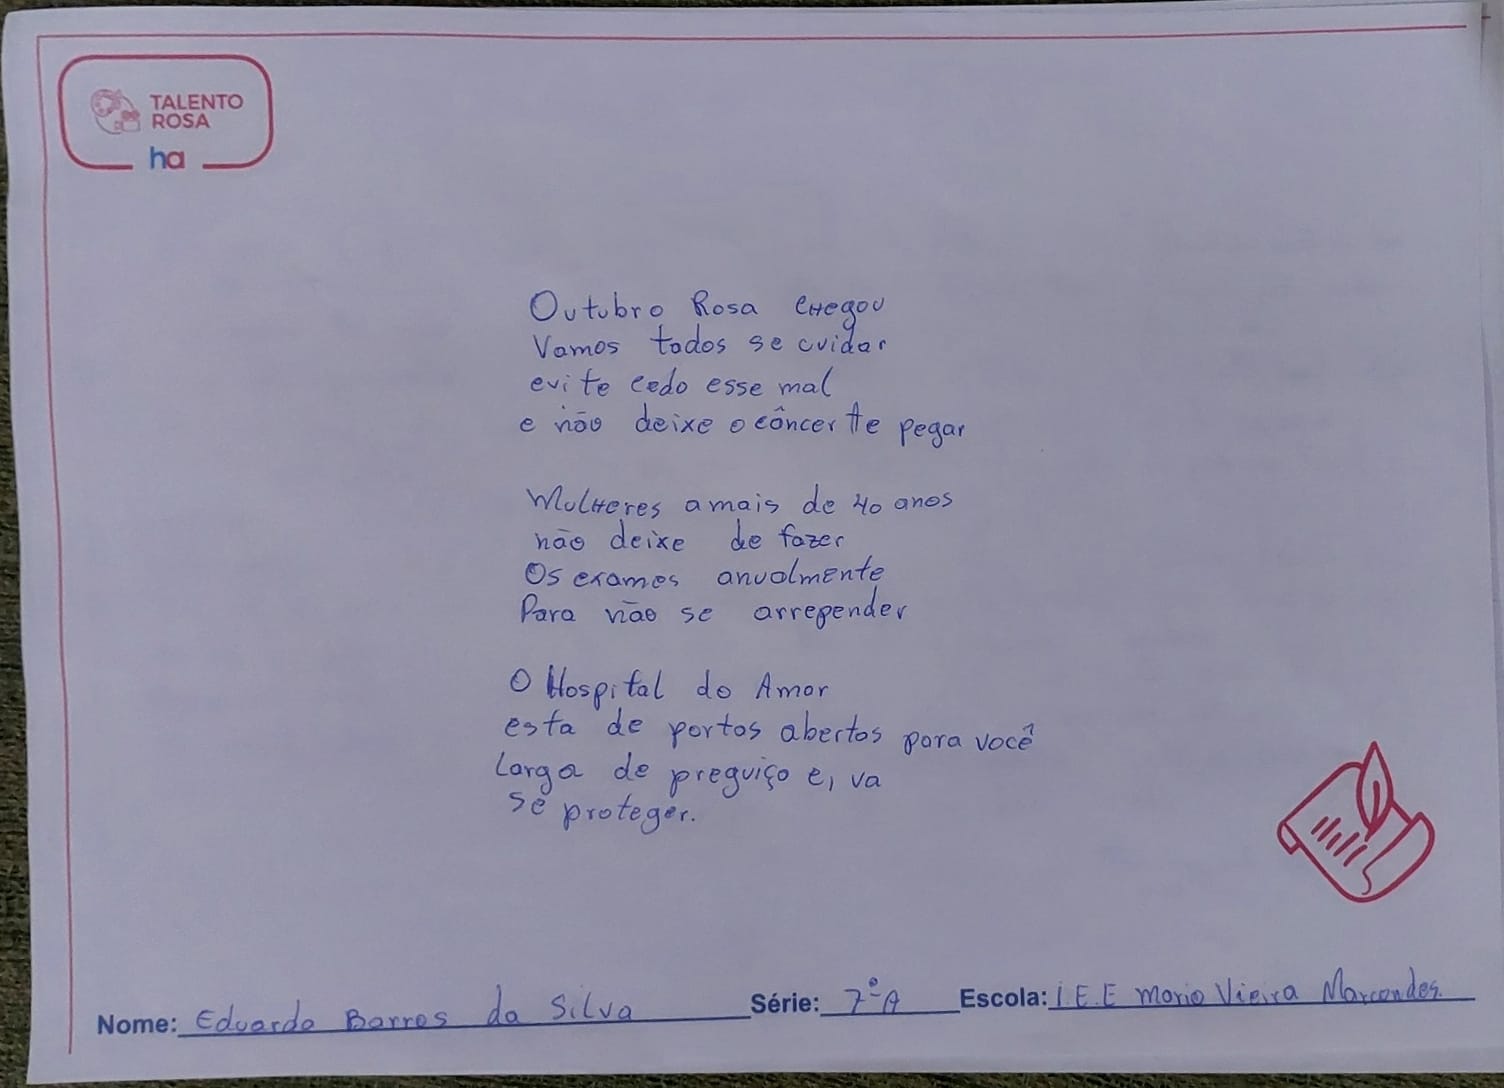 TALENTO
ROSA
ha
Outubro Rosa chegou
Vamos todos se cuidar
evite cedo esse mal
e não deixe o câncer te pegar
Mulheres a mais de 40 anos
não deixe de fazer
Os exames anualmente
Para não se arrepender
O Hospital do Amor
esta de portas abertas para você
Larga de preguiça e, va
se proteger.
Nome: Eduardo Barros da Silva Série: 7º A Escola: I.E.E Maria Vieira Marcondes.